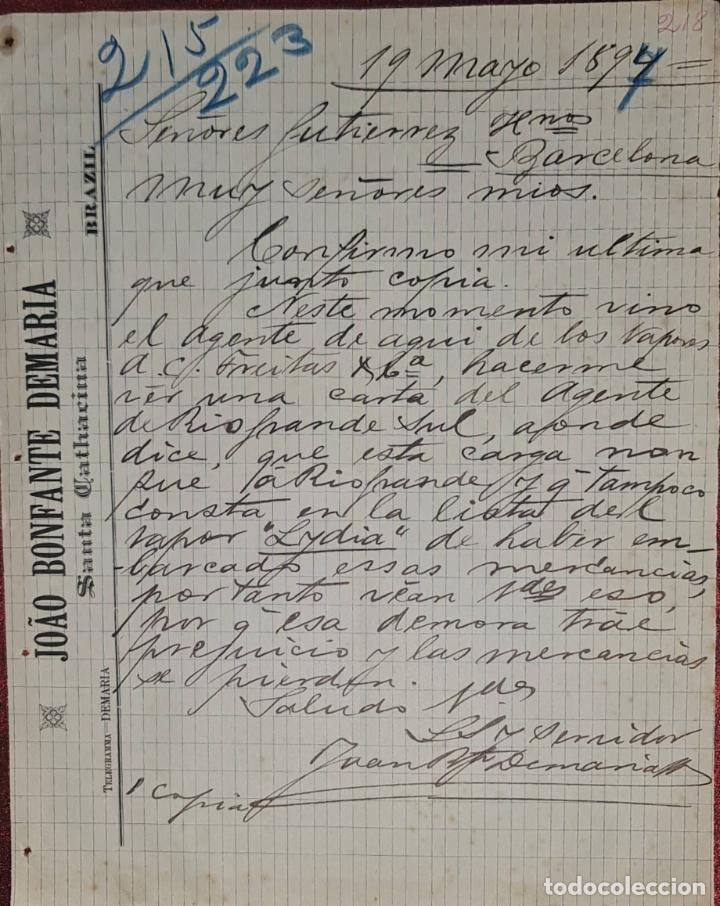 218
215
223
19 Mayo 1894
Señores Gutierrez Hnos
Barcelona
Muy señores mios.
Confirmo mi ultima
que junto copia.
Neste momento vino
el Agente de aqui de los vapores
A. C. Freitas & Cª, hacerme
vér una carta del Agente
de Rio Grande Sul, aonde
dice, que esta carga non
fue á Rio Grande, y q tampoco
consta en la lista del
vapor "Lydia" de haber em-
barcado essas mercancias,
portanto véan Vdes eso,
por q esa demora tráe
prejuicio y las mercancias
se pierden.
Saludo Vdes
SS y servidor
Juan Bte Demaria
1 copia
JOÃO BONFANTE DEMARIA
Santa Catharina
BRAZIL
TELEGRAMMA — DEMARIA
todocoleccion